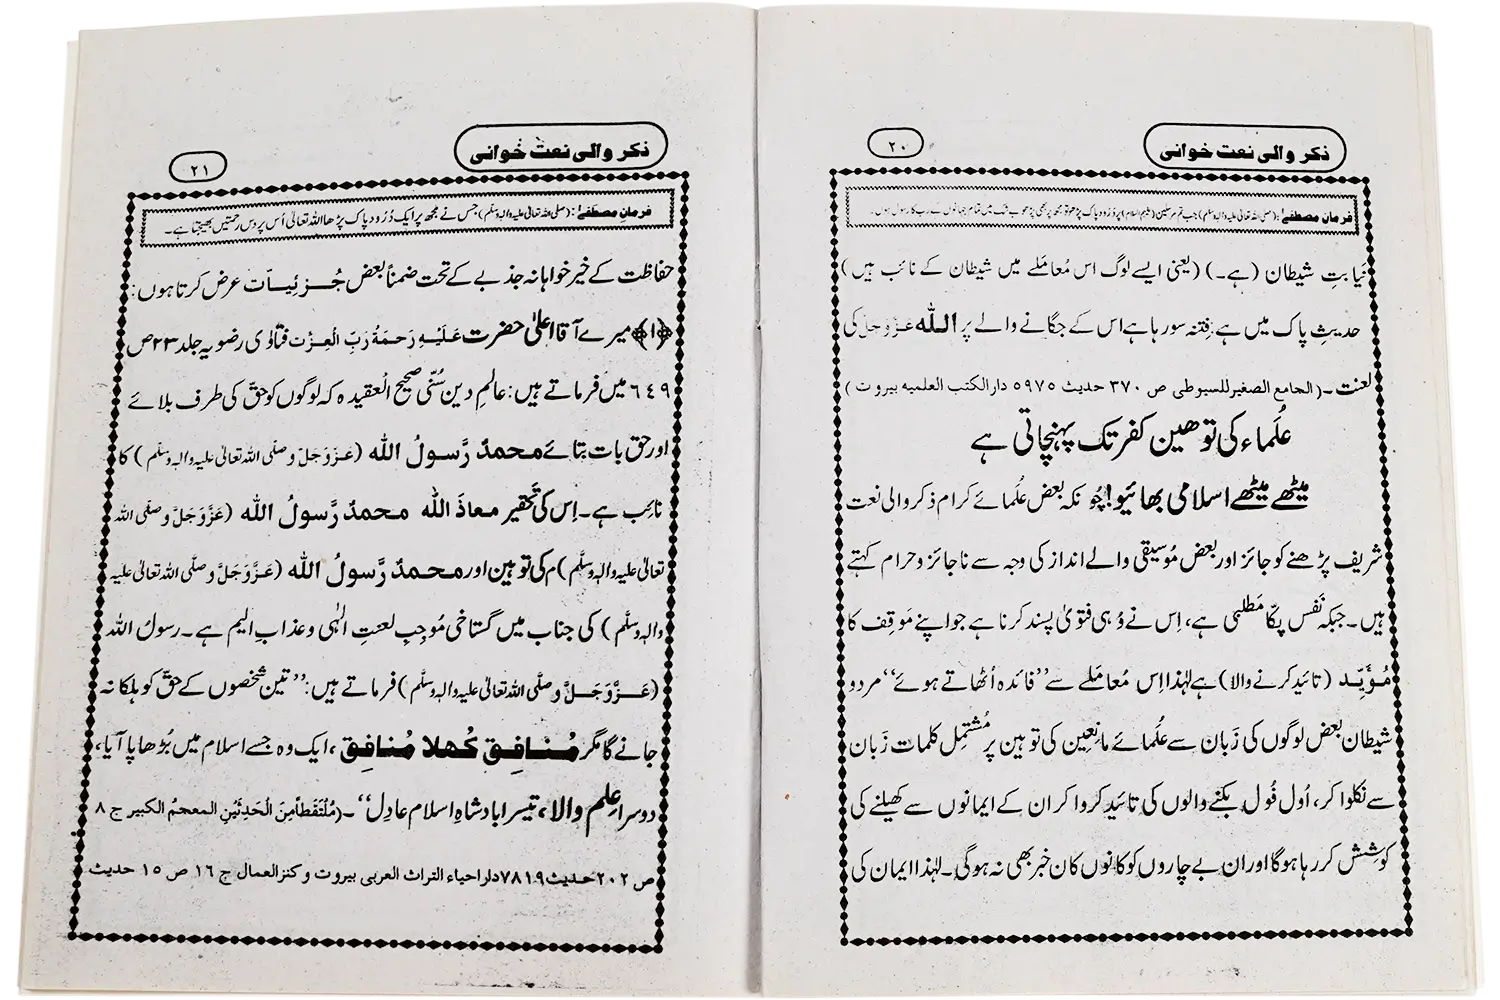 ذکر والی نعت خوانی
۲۰
فرمانِ مصطفےٰ: (صلی اللہ تعالیٰ علیہ واٰلہ وسلم) جب تم مرسلین (علیہم السلام) پر دُرُود پاک پڑھو تو مجھ پر بھی پڑھو بے شک میں تمام جہانوں کے رب کا رسول ہوں۔
نِیابتِ شیطان (ہے۔) (یعنی ایسے لوگ اس مُعامَلے میں شیطان کے نائب ہیں)
حدیثِ پاک میں ہے: فِتنہ سو رہا ہے اس کے جگانے والے پر اللہ عَزَّوَجَلَّ کی
لعنت۔ (الجامع الصغیر للسیوطی ص ۳۷۰ حدیث ۵۹۷۵ دارالکتب العلمیہ بیروت)
عُلَماء کی توھین کفر تک پہنچاتی ہے
میٹھے میٹھے اسلامی بھائیو! چُونکہ بعض عُلَمائے کرام ذکر والی نعت
شریف پڑھنے کو جائز اور بعض مُوسیقی والے انداز کی وجہ سے ناجائز و حرام کہتے
ہیں۔ جبکہ نَفس پکّا مَطلبی ہے، اِس نے وُہی فتویٰ پسند کرنا ہے جو اپنے مَوقِف کا
مُؤَیِّد (تائید کرنے والا) ہے لہٰذا اِس مُعامَلے سے ’’فائدہ اُٹھاتے ہوئے‘‘ مردو
شیطان بعض لوگوں کی زَبان سے عُلَمائے مانِعین کی توہین پر مُشتمِل کلمات زَبان
سے نکلوا کر، اُول فُول بکنے والوں کی تائید کروا کر ان کے ایمانوں سے کھیلنے کی
کوشِش کر رہا ہوگا اور ان بے چاروں کو کانوں کان خبر بھی نہ ہوگی۔ لہٰذا ایمان کی
ذکر والی نعت خوانی
۲۱
فرمانِ مصطفےٰ: (صلی اللہ تعالیٰ علیہ واٰلہ وسلم) جس نے مجھ پر ایک دُرُود پاک پڑھا اللہ تعالیٰ اُس پر دس رحمتیں بھیجتا ہے۔
حفاظت کے خیر خواہانہ جذبے کے تحت ضمناً بعض جُزئِیات عرض کرتا ہوں:
﴿۱﴾ میرے آقا اعلیٰ حضرت عَلَیْہِ رَحمَۃُ رَبِّ الْعِزَّت فتاوٰی رضویہ جلد ۲۳ ص
۶۴۹ میں فرماتے ہیں: عالمِ دین سُنّی صحیح العقیدہ کہ لوگوں کو حق کی طرف بلائے
اور حق بات بتائے محمدٌ رَّسولُ اللہ (عَزَّوَجَلَّ و صلَّی اللہ تعالیٰ علیہ واٰلہ وسلَّم) کا
نائِب ہے۔ اِس کی تحقیر معاذَ اللہ محمدٌ رَّسولُ اللہ (عَزَّوَجَلَّ و صلَّی اللہ
تعالیٰ علیہ واٰلہ وسلَّم) م کی توہین اور محمدٌ رَّسولُ اللہ (عَزَّوَجَلَّ و صلَّی اللہ تعالیٰ علیہ
واٰلہ وسلَّم) کی جناب میں گستاخی مُوجِبِ لعنتِ الٰہی و عذابِ الیم ہے۔ رسولُ اللہ
(عَزَّوَجَلَّ و صلَّی اللہ تعالیٰ علیہ واٰلہ وسلَّم) فرماتے ہیں: ’’تین شخصوں کے حقّ کو ہلکا نہ
جانے گا مگر مُنافِق کُھلا مُنافِق، ایک وہ جسے اسلام میں بُڑھاپا آیا،
دوسرا عِلم والا، تیسرا بادشاہِ اسلام عادِل‘‘۔ (مُلْتَقَطاً مِنَ الْحَدِثَیْنِ المعجمُ الکبیر ج ۸
ص ۲۰۲ حدیث ۷۸۱۹ دار احیاء التراث العربی بیروت و کنزالعمال ج ۱۶ ص ۱۵ حدیث